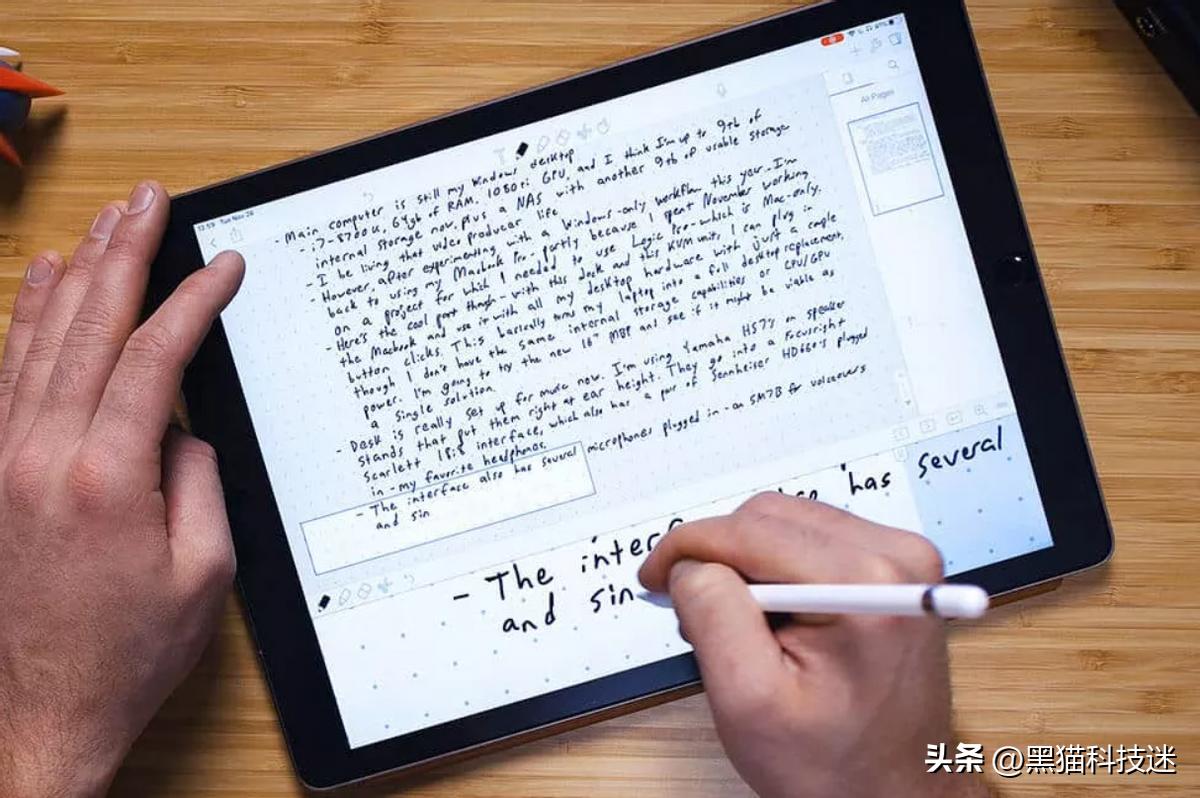 12:59 Tue Nov 26
All Pages
- Main computer is still my Windows desktop
- i7-8700K, 64gb of RAM, 1080ti GPU, and I think I'm up to 9tb of
internal storage now, plus a NAS with another 9tb of usable storage
I be living that video producer life.
- However, after experimenting with a Windows-only workflow this year - I'm
back to using my Macbook Pro - partly because I spent November working
on a project for which I needed to use Logic Pro - which is Mac-only.
- Here's the cool part though - with this dock and this KVM unit, I can plug in
the Macbook and use it with all my desktop hardware with just a couple
button clicks. This basically turns my laptop into a full desktop replacement,
though I don't have the same internal storage capabilities or CPU/GPU
power. I'm going to try the new 16" MBP and see if it might be viable as
a single solution.
- Desk is really set up for music now. I'm using Yamaha HS7's on speaker
stands that put them right at ear height. They go into a Focusright
Scarlett 18i8 interface, which also has a pair of Sennheiser HD660's plugged
in - my favorite headphones.
- The interface also has several microphones plugged in - an SM7B for voiceovers
and sin
- The inter has several
and sin
头条 @黑猫科技迷